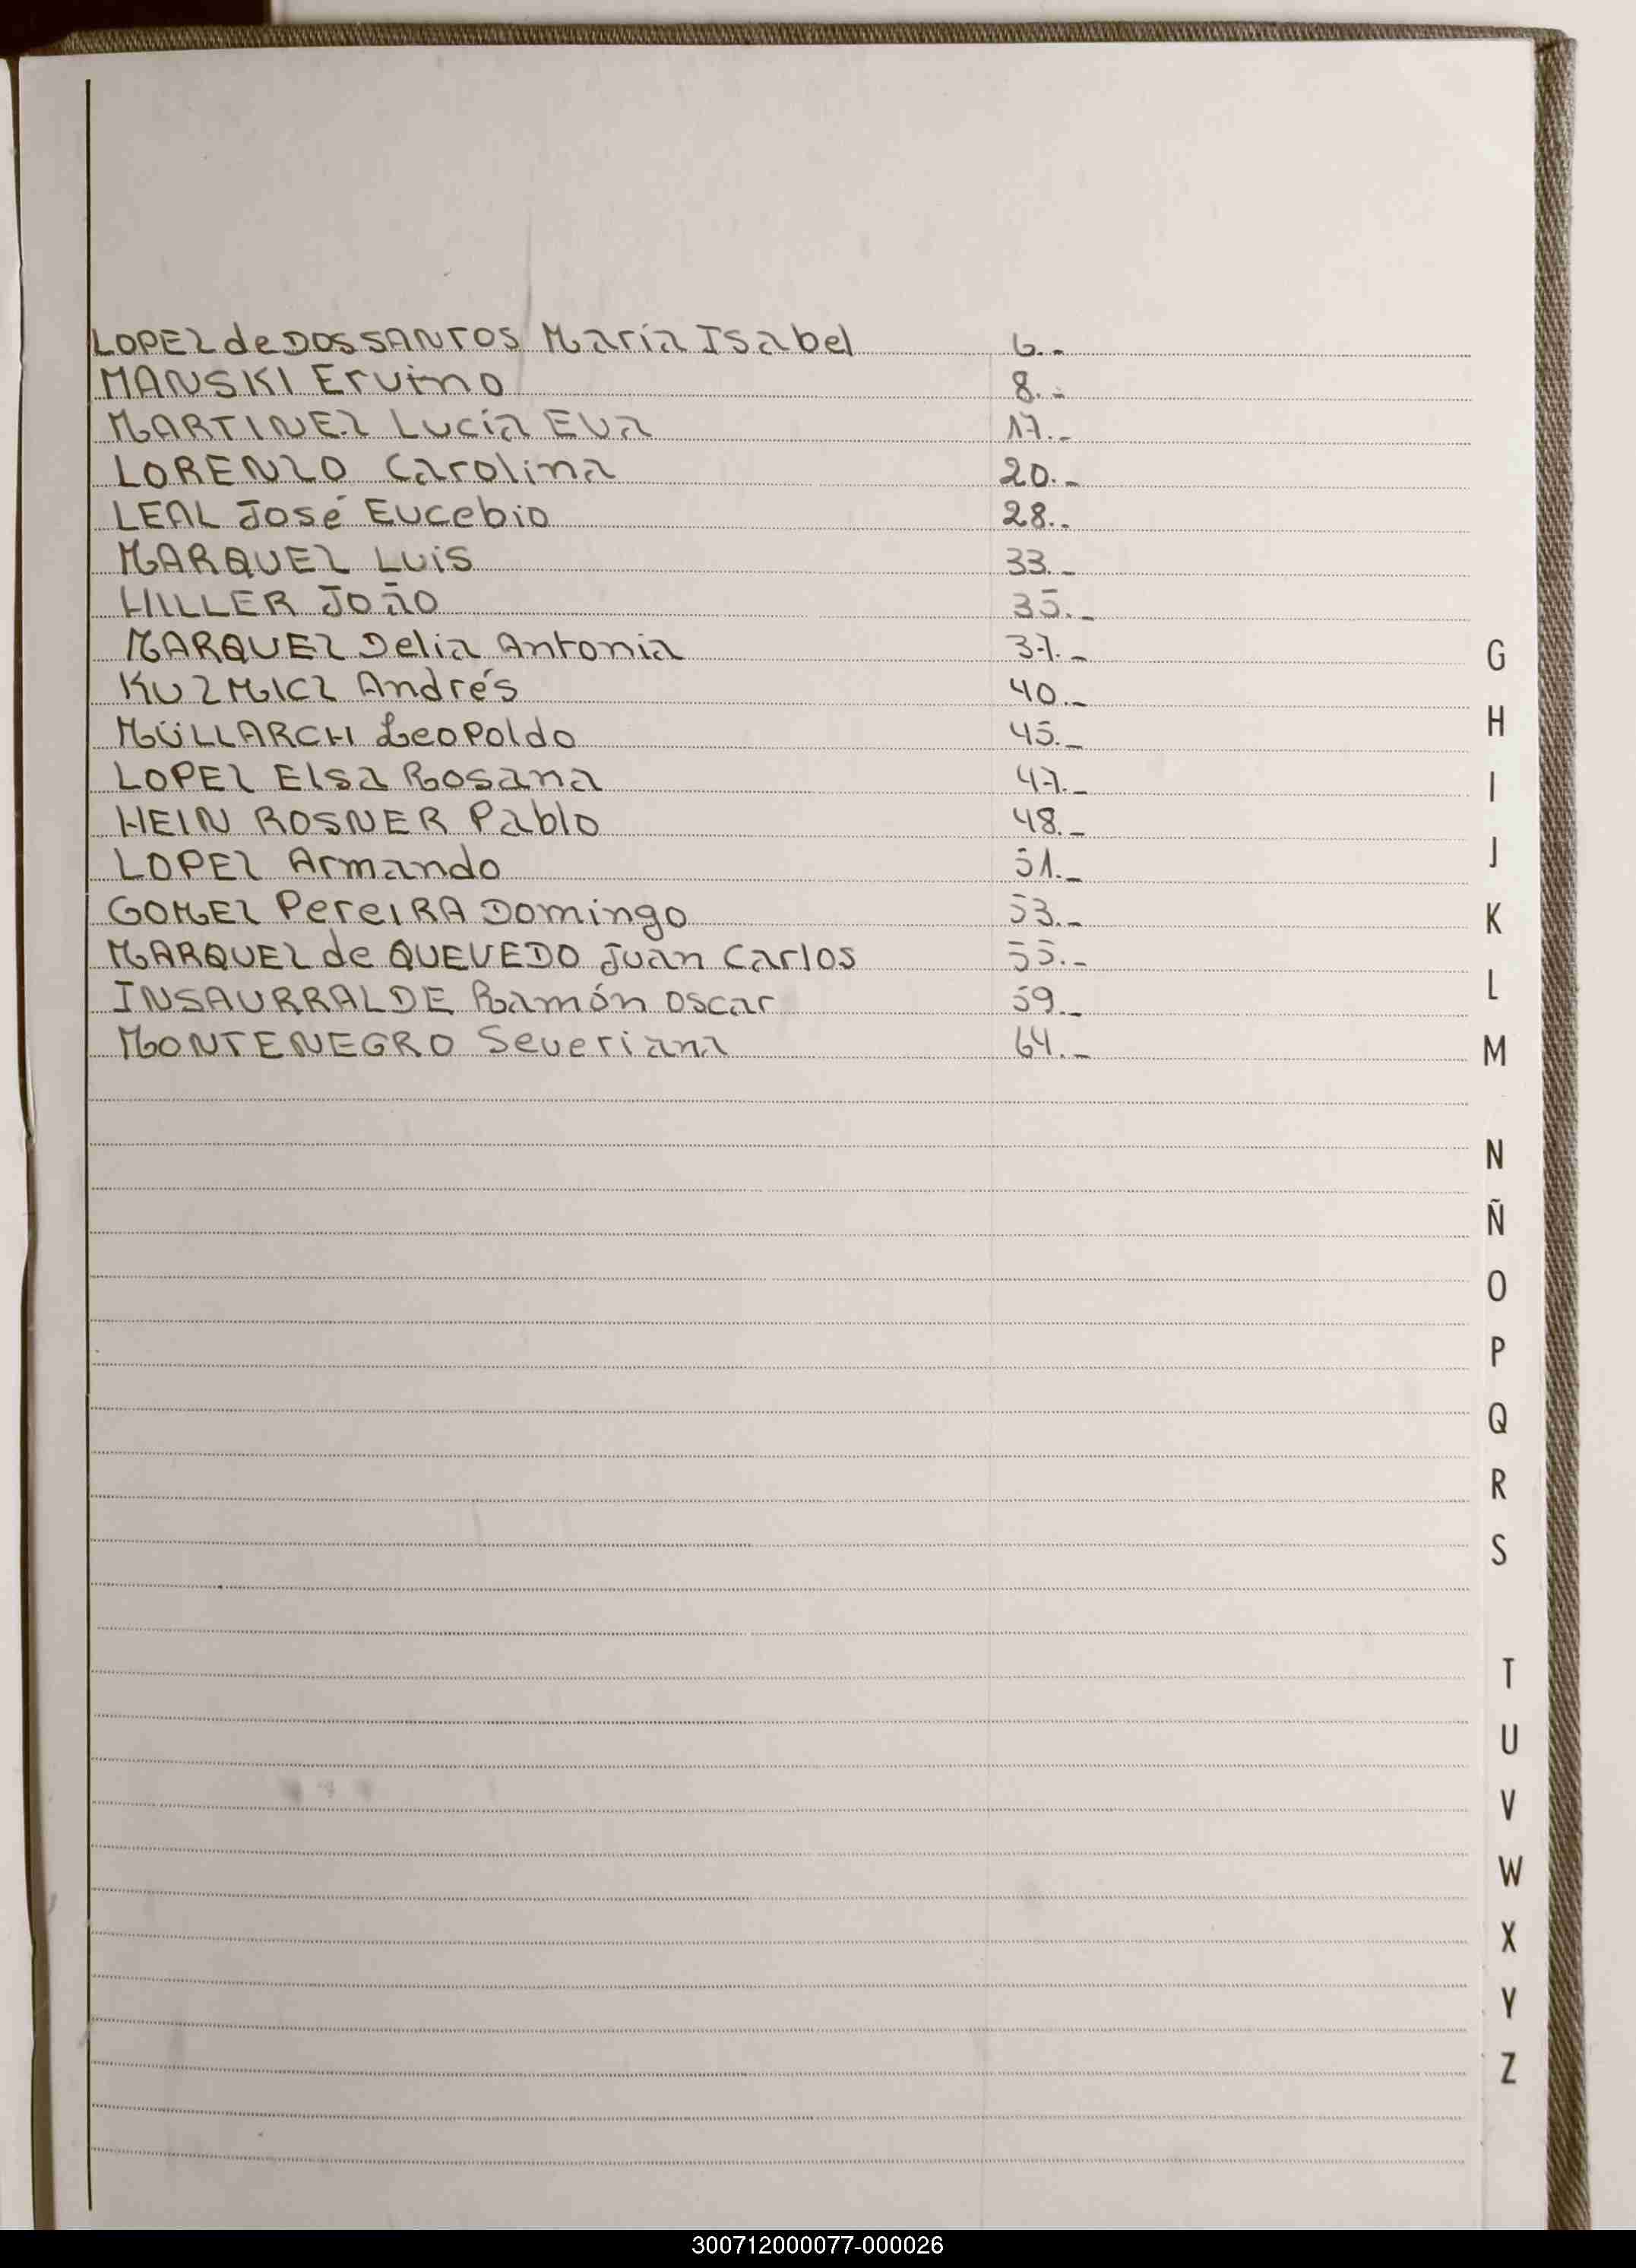 LOPEZ de DOS SANTOS María Isabel 6.-
MANSKI Ervino 8.-
MARTINEZ Lucía Eva 17.-
LORENZO Carolina 20.-
LEAL José Eucebio 28.-
MARQUEZ Luis 33.-
HILLER João 35.-
MARQUEZ Delia Antonia 37.-
KUZMICZ Andrés 40.-
MÜLLARCH Leopoldo 45.-
LOPEZ Elsa Rosana 47.-
HEIN ROSNER Pablo 48.-
LOPEZ Armando 51.-
GOMEZ PereiRA Domingo 53.-
MARQUEZ de QUEVEDO Juan Carlos 55.-
INSAURRALDE Ramón Oscar 59.-
MONTENEGRO Severiana 64.-
G
H
I
J
K
L
M
N
Ñ
O
P
Q
R
S
T
U
V
W
X
Y
Z
300712000077-000026